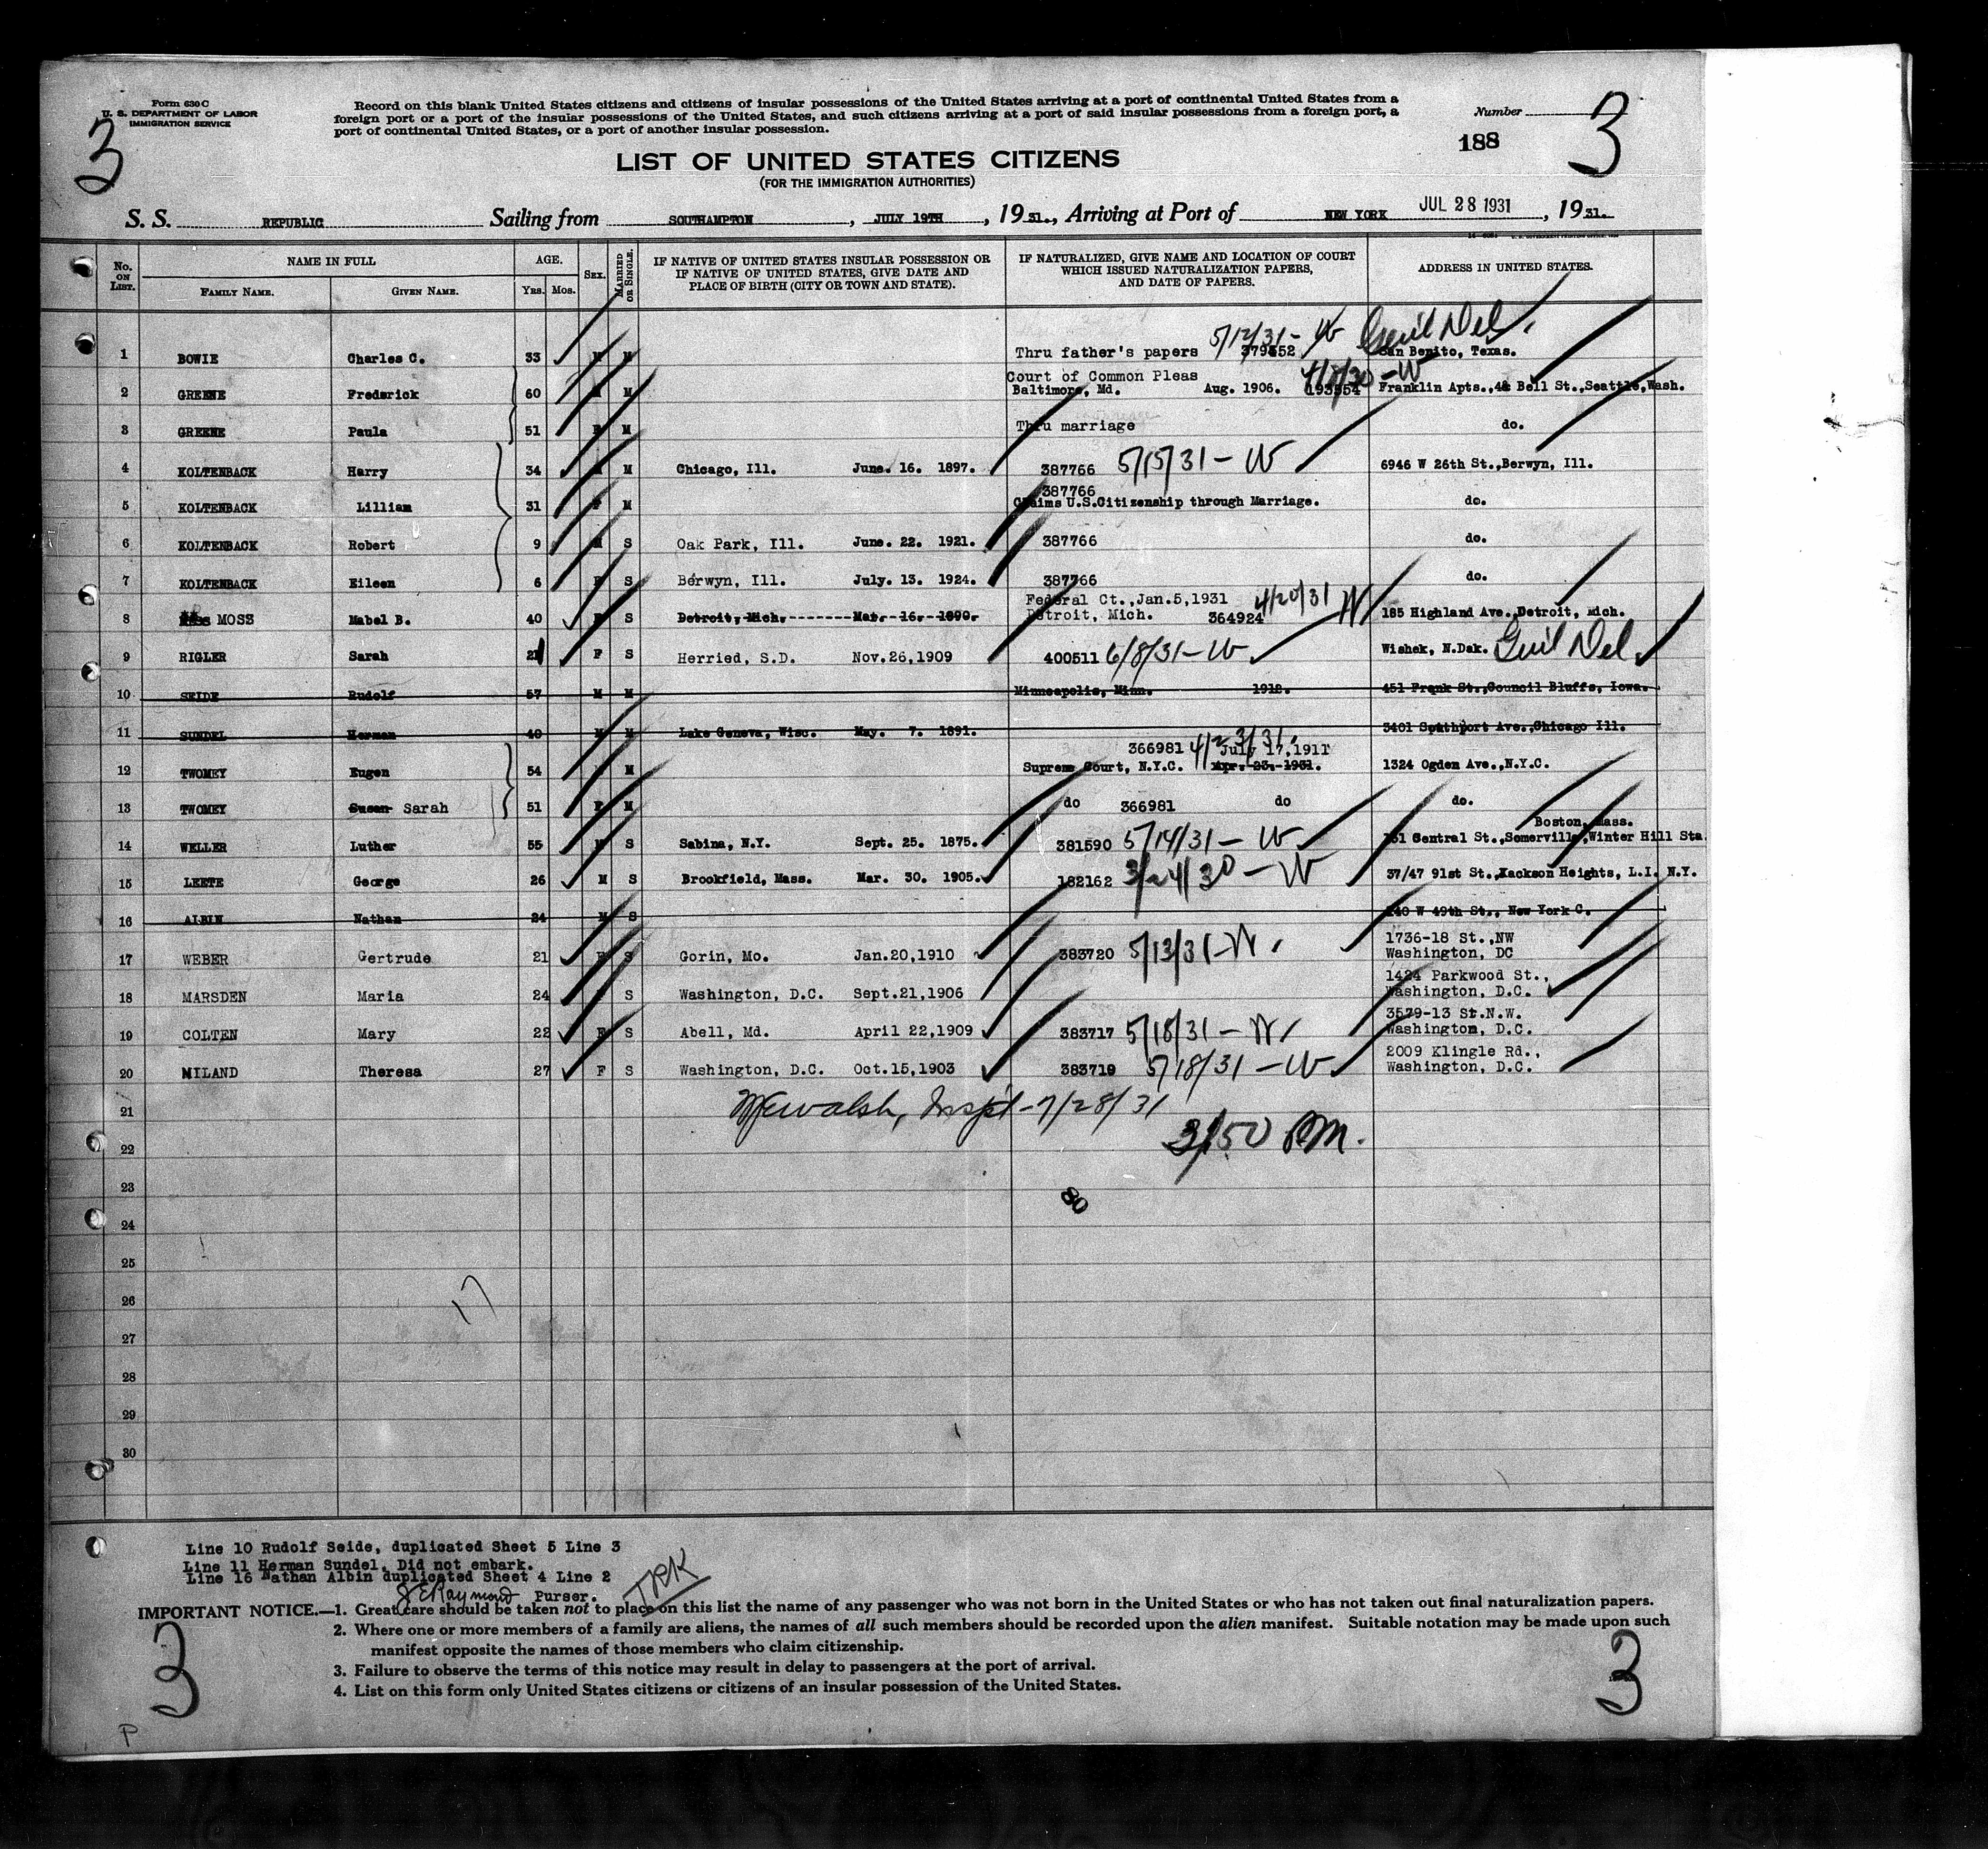 Form 630 C
U. S. DEPARTMENT OF LABOR
IMMIGRATION SERVICE
3
Record on this blank United States citizens and citizens of insular possessions of the United States arriving at a port of continental United States from a
foreign port or a port of the insular possessions of the United States, and such citizens arriving at a port of said insular possessions from a foreign port, a
port of continental United States, or a port of another insular possession.
Number
188
3
LIST OF UNITED STATES CITIZENS
(FOR THE IMMIGRATION AUTHORITIES)
S. S. REPUBLIC Sailing from SOUTHAMPTON, JULY 19TH, 1931., Arriving at Port of NEW YORK JUL 28 1931, 1931.
No. ON LIST. NAME IN FULL FAMILY NAME. GIVEN NAME. AGE. YRS. MOS. SEX. MARRIED OR SINGLE. IF NATIVE OF UNITED STATES INSULAR POSSESSION OR IF NATIVE OF UNITED STATES, GIVE DATE AND PLACE OF BIRTH (CITY OR TOWN AND STATE). IF NATURALIZED, GIVE NAME AND LOCATION OF COURT WHICH ISSUED NATURALIZATION PAPERS, AND DATE OF PAPERS. ADDRESS IN UNITED STATES.
1 BOWIE Charles C. 33 M M Thru father's papers 5/12/31 - W San Benito, Texas.
2 GREENE Frederick 60 M M Court of Common Pleas Baltimore, Md. Aug. 1906. 193554 Franklin Apts., Bell St., Seattle, Wash.
3 GREENE Paula 51 F M Thru marriage do.
4 KOLTENBACK Harry 34 M M Chicago, Ill. June. 16. 1897. 387766 5/15/31 - W 6946 W 26th St., Berwyn, Ill.
5 KOLTENBACK Lilliam 31 F M 387766 Claims U.S.Citizenship through Marriage. do.
6 KOLTENBACK Robert 9 M S Oak Park, Ill. June. 22. 1921. 387766 do.
7 KOLTENBACK Eileen 6 F S Berwyn, Ill. July. 13. 1924. 387766 do.
8 MOSS Mabel B. 40 F S Detroit, Mich. Mar. 16. 1890. Federal Ct., Jan.5,1931 Detroit, Mich. 364924 4/20/31 W 185 Highland Ave., Detroit, Mich.
9 RIGLER Sarah 21 F S Herried, S.D. Nov.26,1909 400511 6/8/31 - W Wishek, N.Dak.
10 SEIDE Rudolf 57 M M Minneapolis, Minn. 1912. 451 Frank St., Council Bluffs, Iowa.
11 SUNDEL Herman 40 M M Lake Geneva, Wisc. May. 7. 1891. 3401 Southport Ave., Chicago Ill.
12 TWOMEY Eugen 54 M 366981 4/23/31. July 17,1911 Supreme Court, N.Y.C. Apr. 23. 1931. 1324 Ogden Ave., N.Y.C.
13 TWOMEY Susan Sarah 51 F M do 366981 do do.
14 WELLER Luther 55 M S Sabina, N.Y. Sept. 25. 1875. 381590 5/14/31 - W Boston, Mass. Central St., Somerville, Winter Hill Sta.
15 LEETE George 26 M S Brookfield, Mass. Mar. 30. 1905. 182162 3/24/30 - W 37/47 91st St., Kackson Heights, L.I. N.Y.
16 ALBIN Nathan 24 M S 240 W 49th St., New York C.
17 WEBER Gertrude 21 F S Gorin, Mo. Jan.20,1910 383720 5/13/31 - W. 1736-18 St., NW Washington, DC
18 MARSDEN Maria 24 S Washington, D.C. Sept.21,1906 1424 Parkwood St., Washington, D.C.
19 COLTEN Mary 22 F S Abell, Md. April 22,1909 383717 5/18/31 - W 3579-13 St.N.W. Washington, D.C.
20 MILAND Theresa 27 F S Washington, D.C. Oct.15,1903 383719 5/18/31 - W 2009 Klingle Rd., Washington, D.C.
21 Walsh, Insp't - 7/28/31
22 3/50 PM.
23
24
25
26
27
28
29
30
80
17
Line 10 Rudolf Seide, duplicated Sheet 5 Line 3
Line 11 Herman Sundel. Did not embark.
Line 16 Nathan Albin duplicated Sheet 4 Line 2
Raymond Purser.
IMPORTANT NOTICE.—1. Great care should be taken not to place on this list the name of any passenger who was not born in the United States or who has not taken out final naturalization papers.
2. Where one or more members of a family are aliens, the names of all such members should be recorded upon the alien manifest. Suitable notation may be made upon such
manifest opposite the names of those members who claim citizenship.
3. Failure to observe the terms of this notice may result in delay to passengers at the port of arrival.
4. List on this form only United States citizens or citizens of an insular possession of the United States.
3
3
P